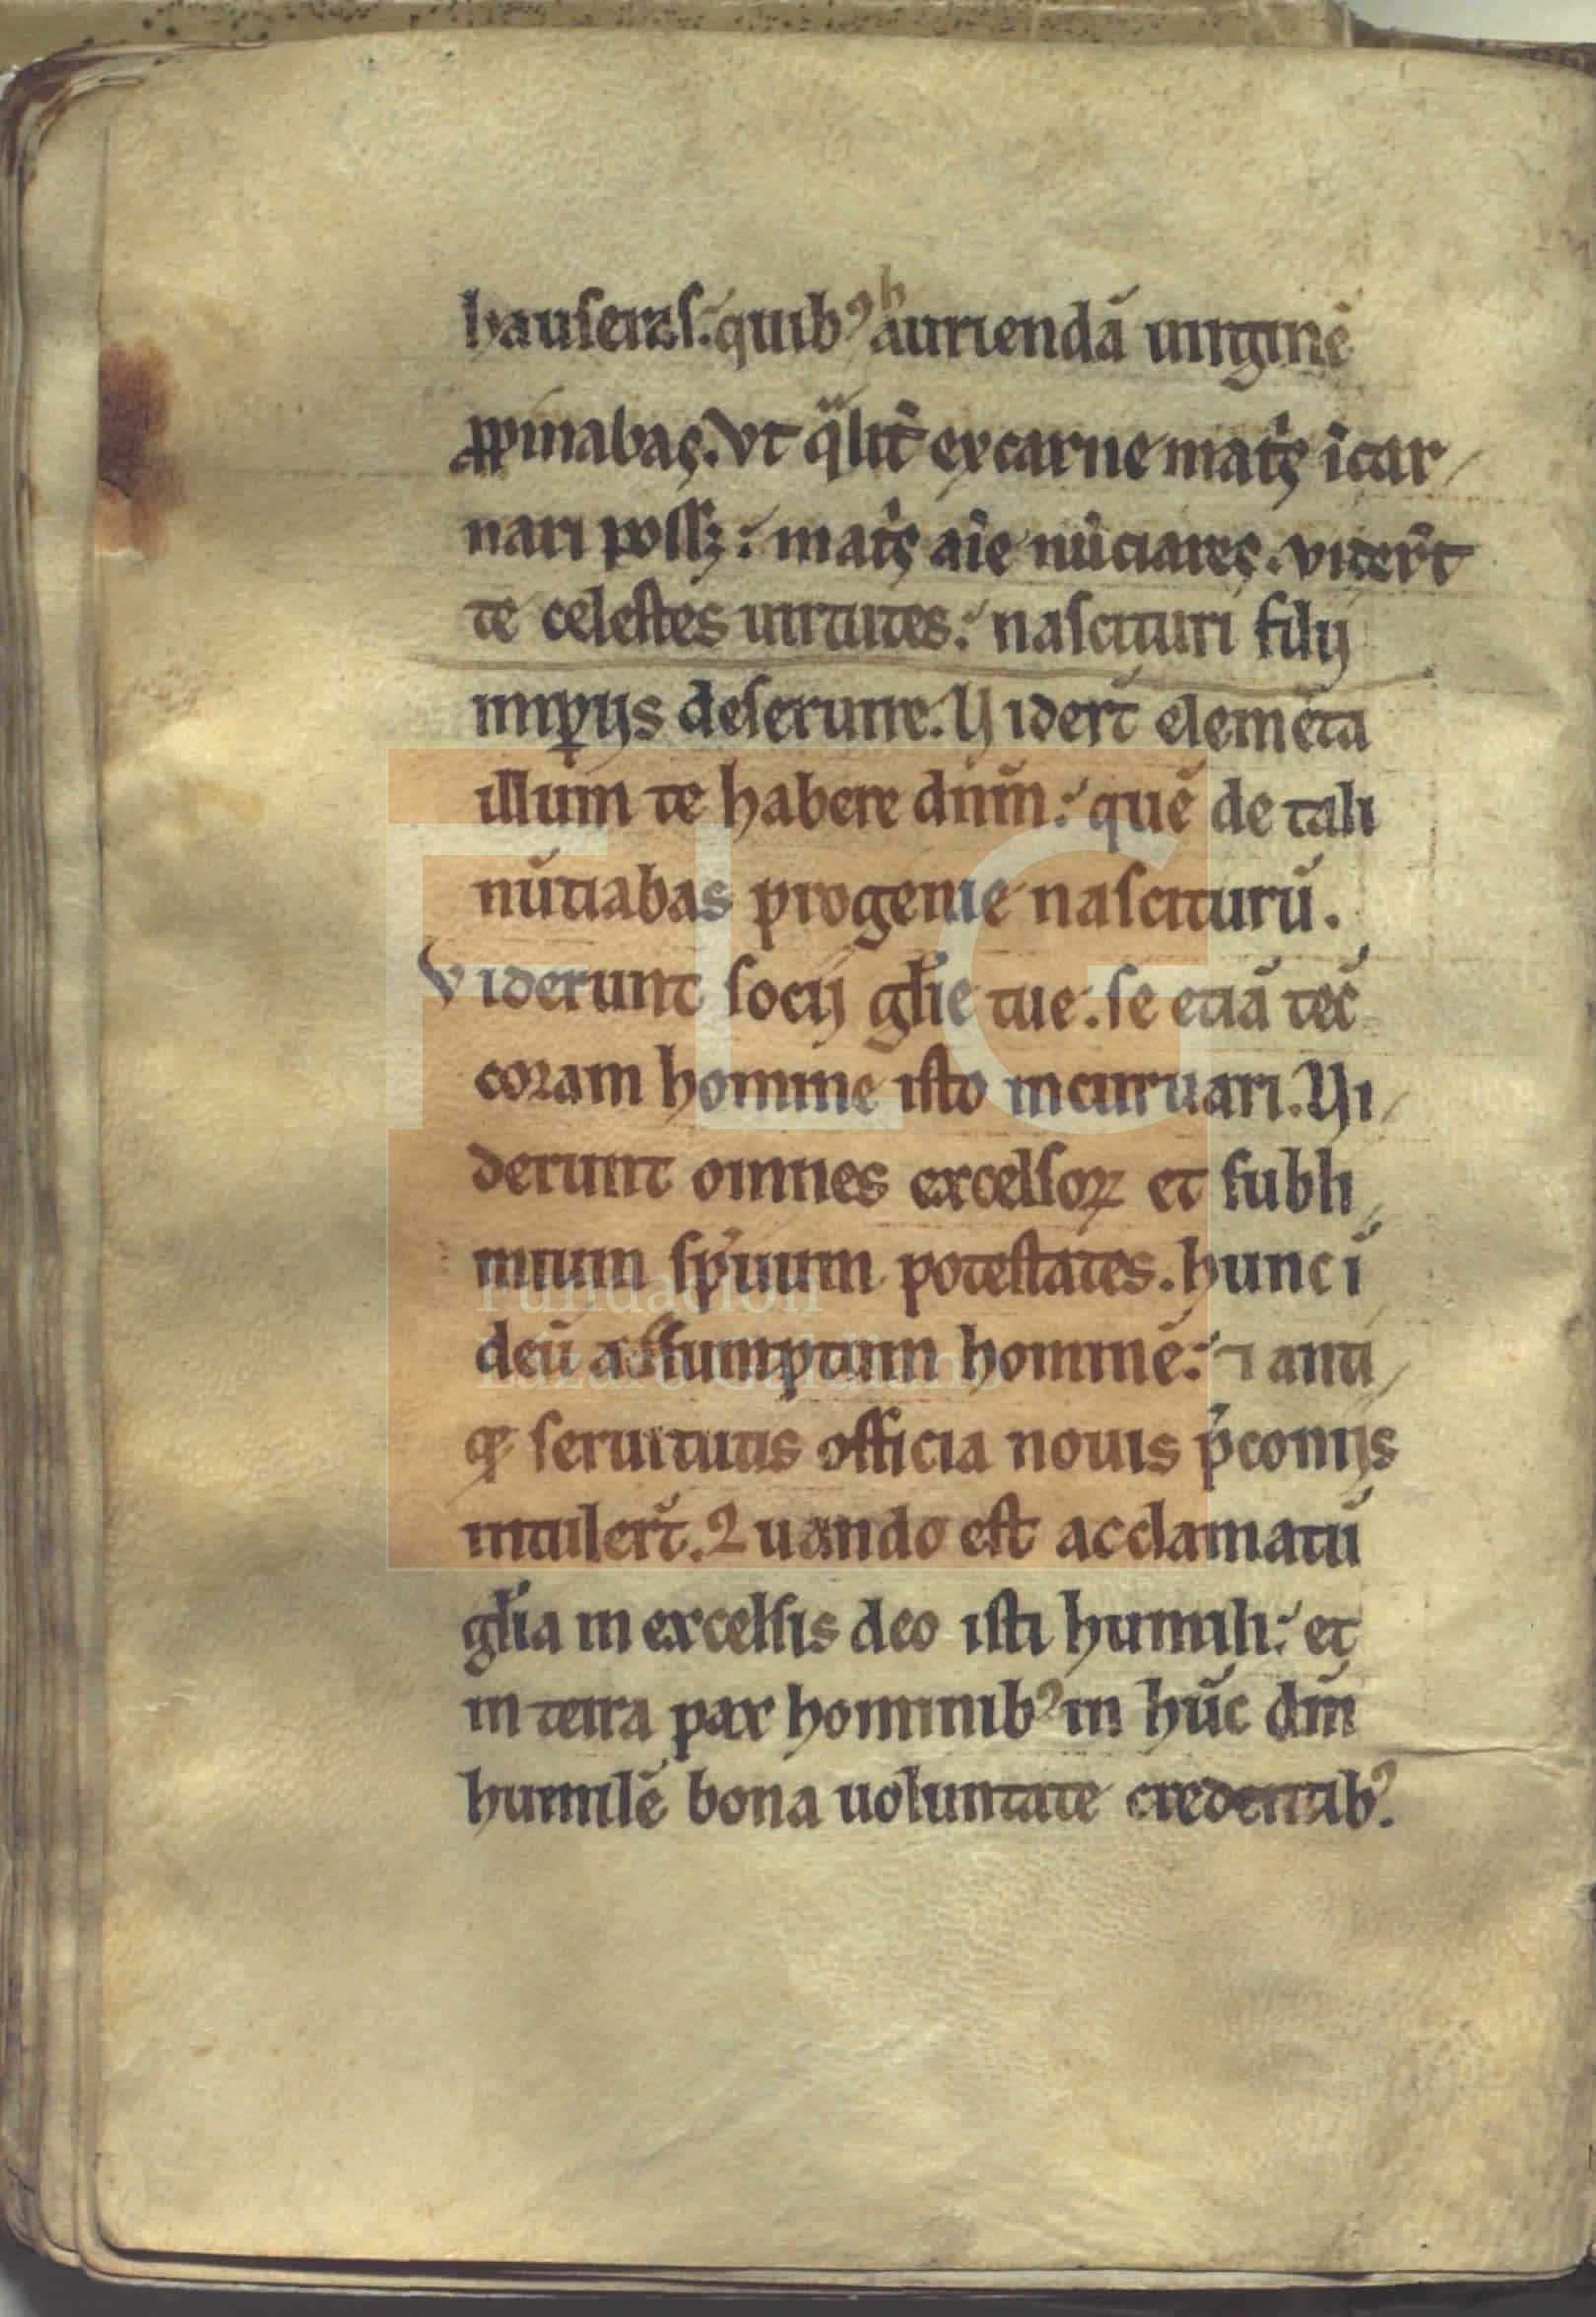 hauseras. quibꝰ hauriendã uirginẽ
ꝓpinabas. Vt q̃lit̃ ex carne mat̃s ĩcar
nari possꝫ: mat̃s aĩe nũciares. vider̃t
te celestes uirtutes: nascituri filij
imꝑijs deseruire. Vider̃t elemẽta
illum te habere dñm: quẽ de tali
nũtiabas progenie nasciturũ.
Viderunt socij gl̃ie tue. se etiã tec̃
coram homine isto incuruari. Vi
derunt omnes excelsoꝝ et subli
mium sp̃uum potestates. hunc ĩ
deũ assumptum hominẽ: ⁊ anti
q̃ seruitutis officia nouis p̃conijs
intuler̃t. Quando est acclamatũ
gl̃ia in excelsis deo isti humili: et
in terra pax hominibꝰ in hũc dñm
humilẽ bona uoluntate credentibꝰ.
FLG
Fundación
Lázaro Galdiano